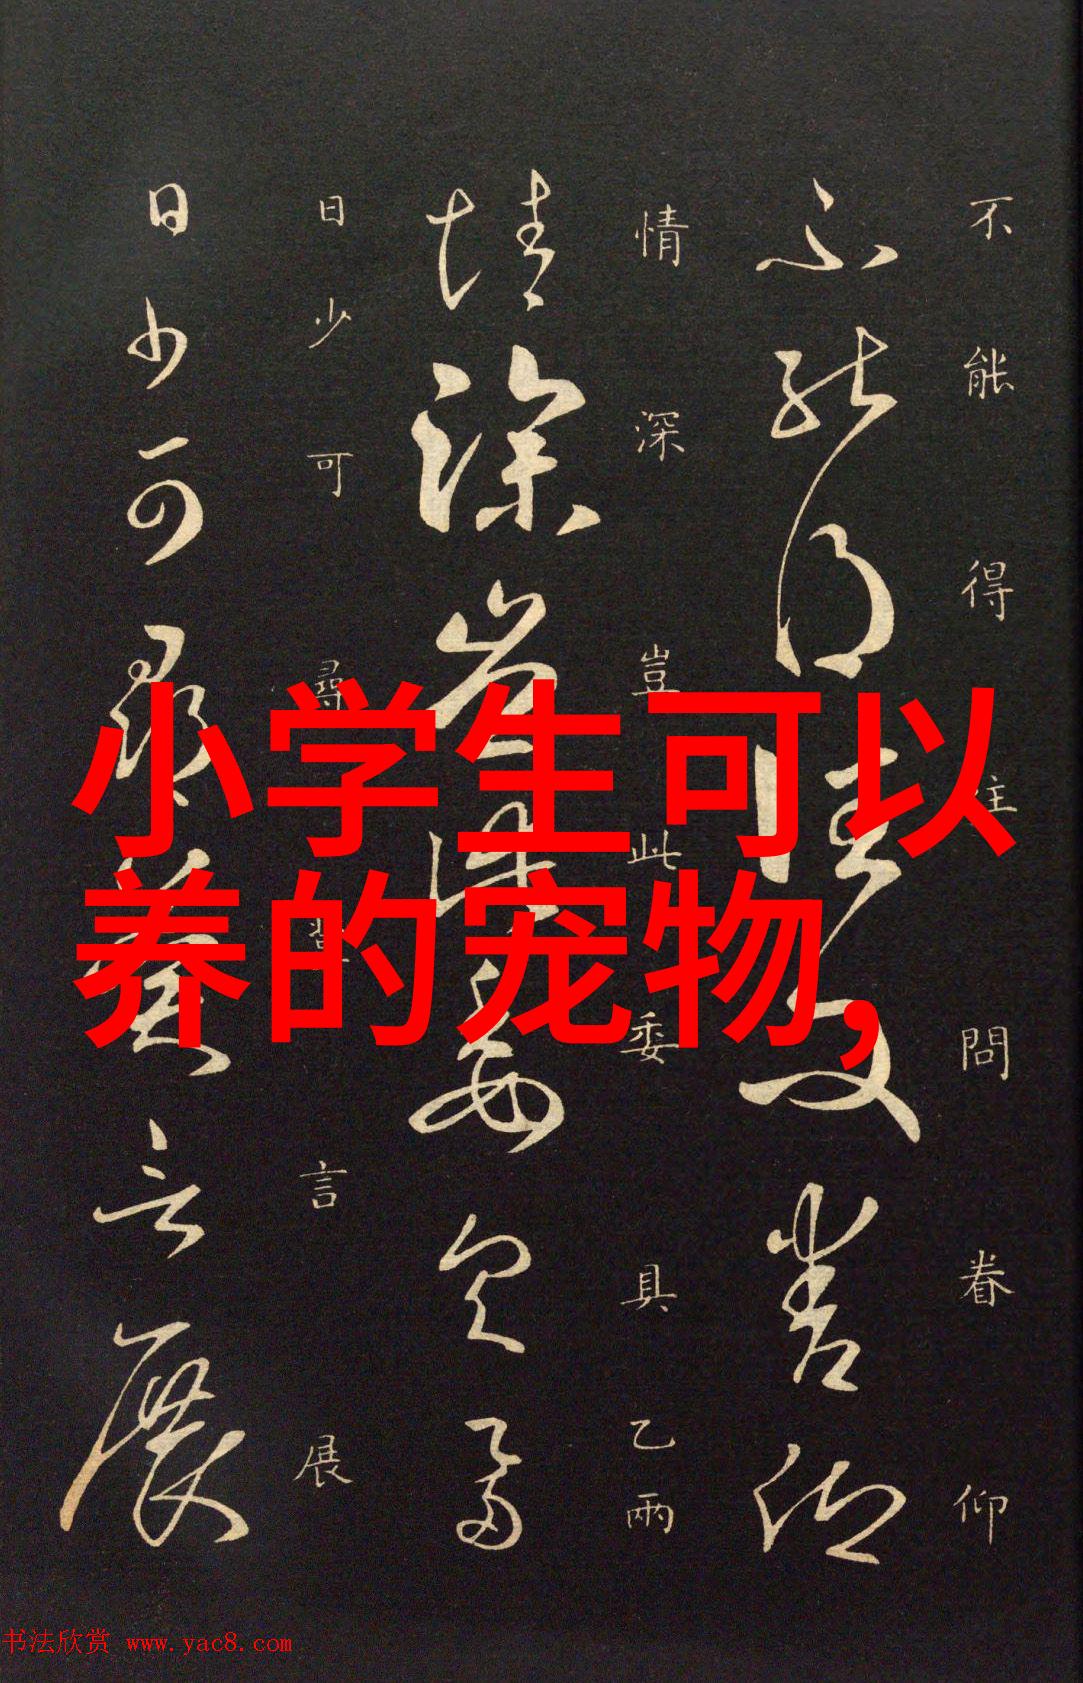 小学生可以
养的宠物,
不能得往问眷仰
情深岂此委具乙兩
日少可尋
言展
书法欣赏 www.yac8.com